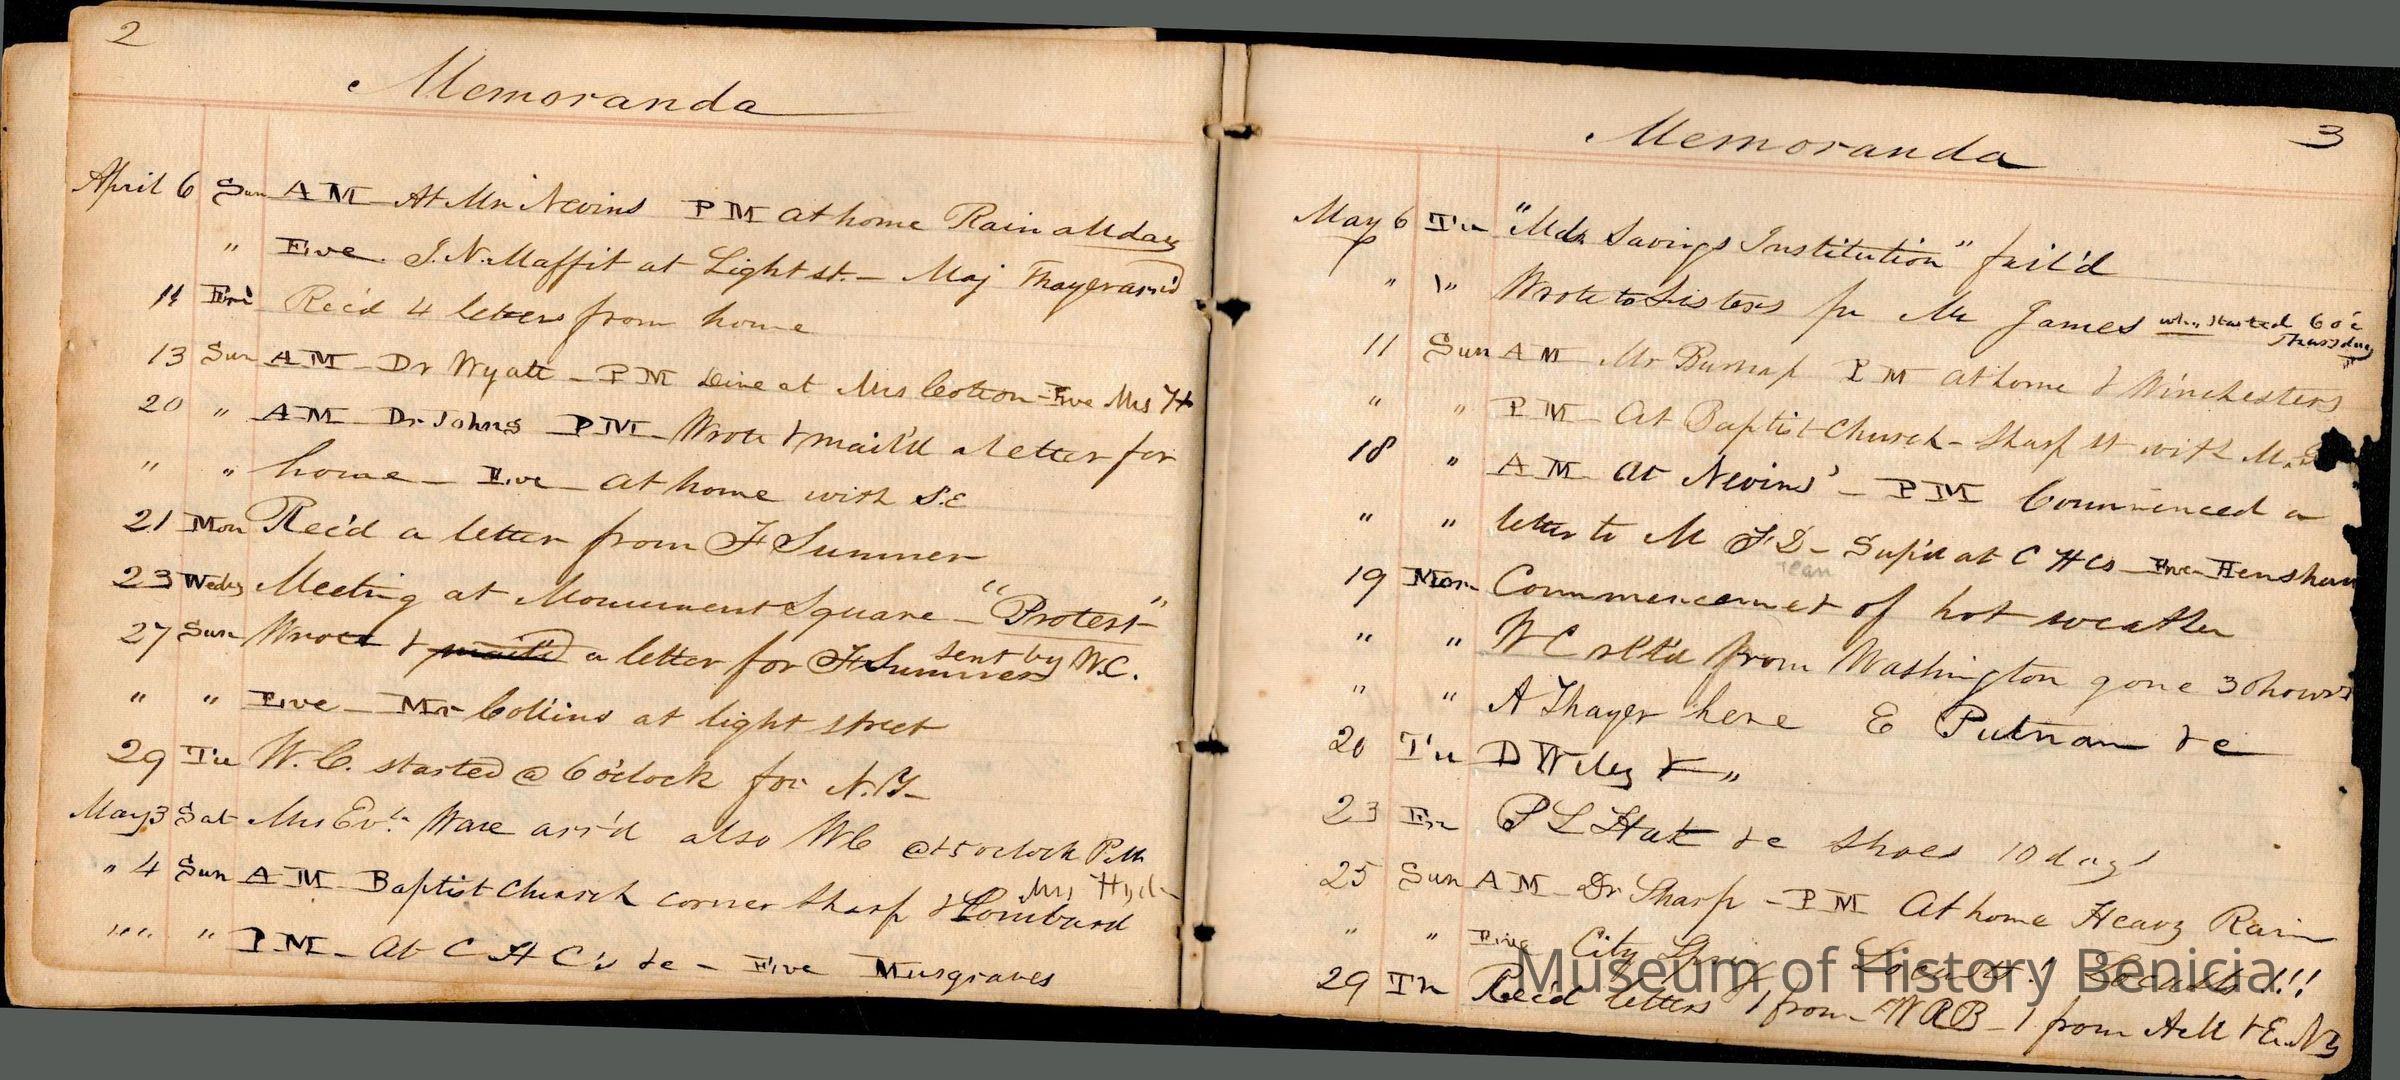 2
Memoranda
April 6 Sun AM At Mr Nevins PM at home Rain all day
" Eve. J. N. Maffit at Light st. - Maj Thayer arriv'd
11 Fri Rec'd 4 letters from home
13 Sun AM - Dr Wyatt - PM Dine at Mrs Cotton - Eve Mrs H
20 " AM - Dr Johns PM - Wrote & mail'd a letter for
" " home - Eve - at home with S.E
21 Mon Rec'd a letter from F Sumner
23 Wedy Meeting at Monument Square - "Protest"
27 Sun Wrote & mail'd a letter for F Sumner sent by W.C.
" " Eve - Mr Collins at light street
29 Tu W. C. started @ 6 o'clock for N.Y-
May 3 Sat Mrs Evln Ware arr'd also WC @ 5 oclock P.M
" 4 Sun AM - Baptist Church corner Sharp & Lombard Mrs Hyde
" " " PM - At C H C's &c - Eve Musgraves
3
Memoranda
May 6 Tu "Mds Savings Institution" fail'd
" " Wrote to Sisters pr Mr James who started 6 o'c Thursday
11 Sun AM Mr Burnap PM at home & Winchesters
" " PM - At Baptist Church - Sharp st with M.
18 " AM at Nevins' - PM Commenced a
" " letter to M F D - Sup'd at C H Cs - Eve - Henshaw
19 Mon Commencement of hot weather
" " W C ret'd from Washington gone 30 hours
" " A Thayer here E Putnam &c
20 Tu D Wiley & "
23 Fri P L Hat &c Shoes 10 days
25 Sun AM - Dr Sharp - PM At home Heavy Rain
" " Eve City Spring Locusts! Locusts!!!
29 Th Rec'd letters 1 from W R B - 1 from A M & E. N
Museum of History Benicia